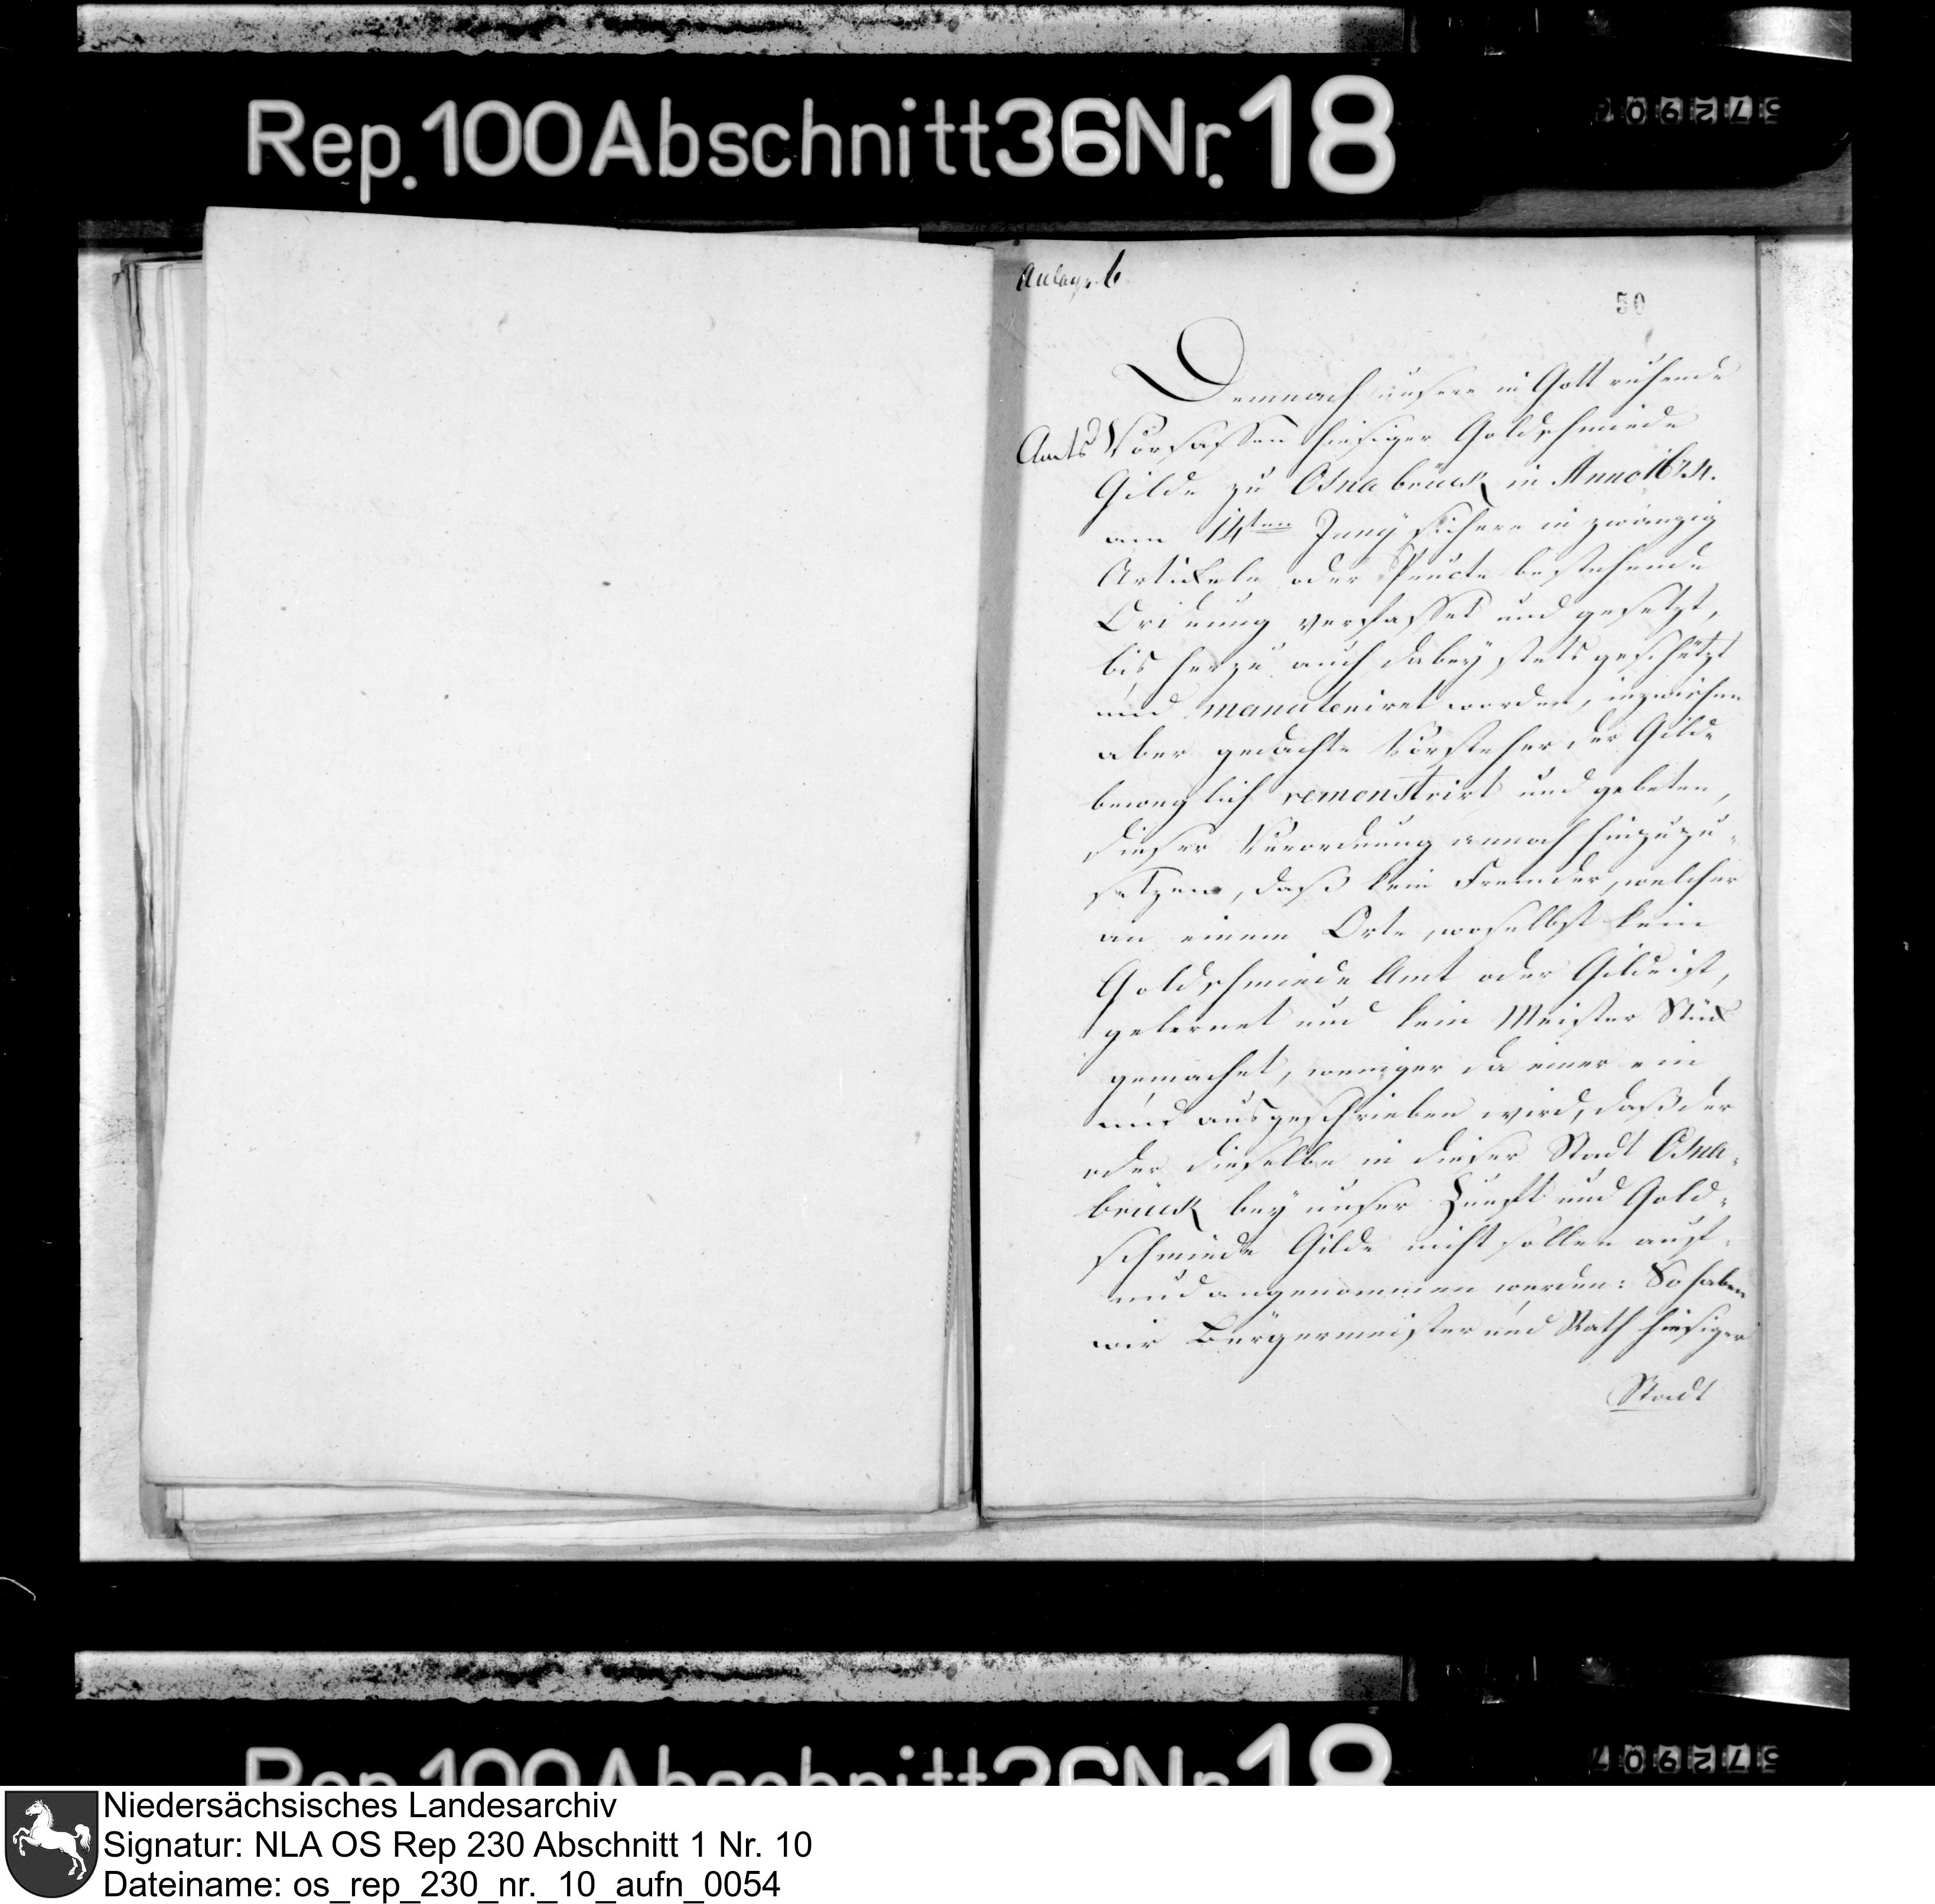 Rep. 100 Abschnitt 36 Nr. 18
572907
Anlage 6
50
Demnach unsere in Gott ruhende
Amts Vorfassen hiesiger Goldschmiede
Gilde zu Osnabrück in Anno 1674.
am 14ten Juny sichere in zwanzig
Artikeln oder Puncte bestehende
Ordnung verfasset und gesetzt,
bis herzu auch dabey stets geschützt
und manuteniret worden, inzwischen
aber gedachte Vorsteher der Gilde
beweglich remonstrirt und gebeten,
dieser Verordnung annoch hinzuzu-
setzen, daß kein Fremder, welcher
an einem Orte, woselbst kein
Goldschmiede Amt oder Gilde ist,
gelernet und kein Meister Stück
gemachet, weniger da einer ein
und ausgeschrieben wird, daß der
oder dieselbe in dieser Stadt Osna-
brück bey unser Zunft und Gold-
schmiede Gilde nicht sollen auf-
und angenommen werden: So haben
wir Bürgermeister und Rath hiesiger
Stadt
Rep. 100 Abschnitt 36 Nr. 18
572907
Niedersächsisches Landesarchiv
Signatur: NLA OS Rep 230 Abschnitt 1 Nr. 10
Dateiname: os_rep_230_nr._10_aufn_0054